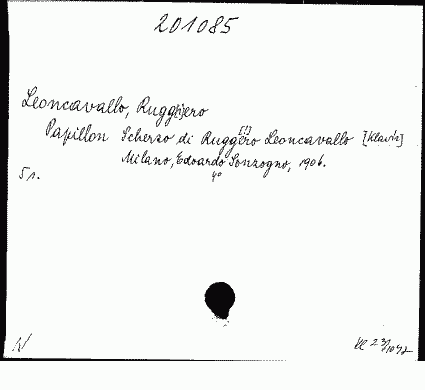 201085
Leoncavallo, Rugg[i]ero
Papillon Scherzo di Ruggero [!] Leoncavallo [Klavír]
Milano, Edoardo Sonzogno, 1906.
4°
5 s.
N